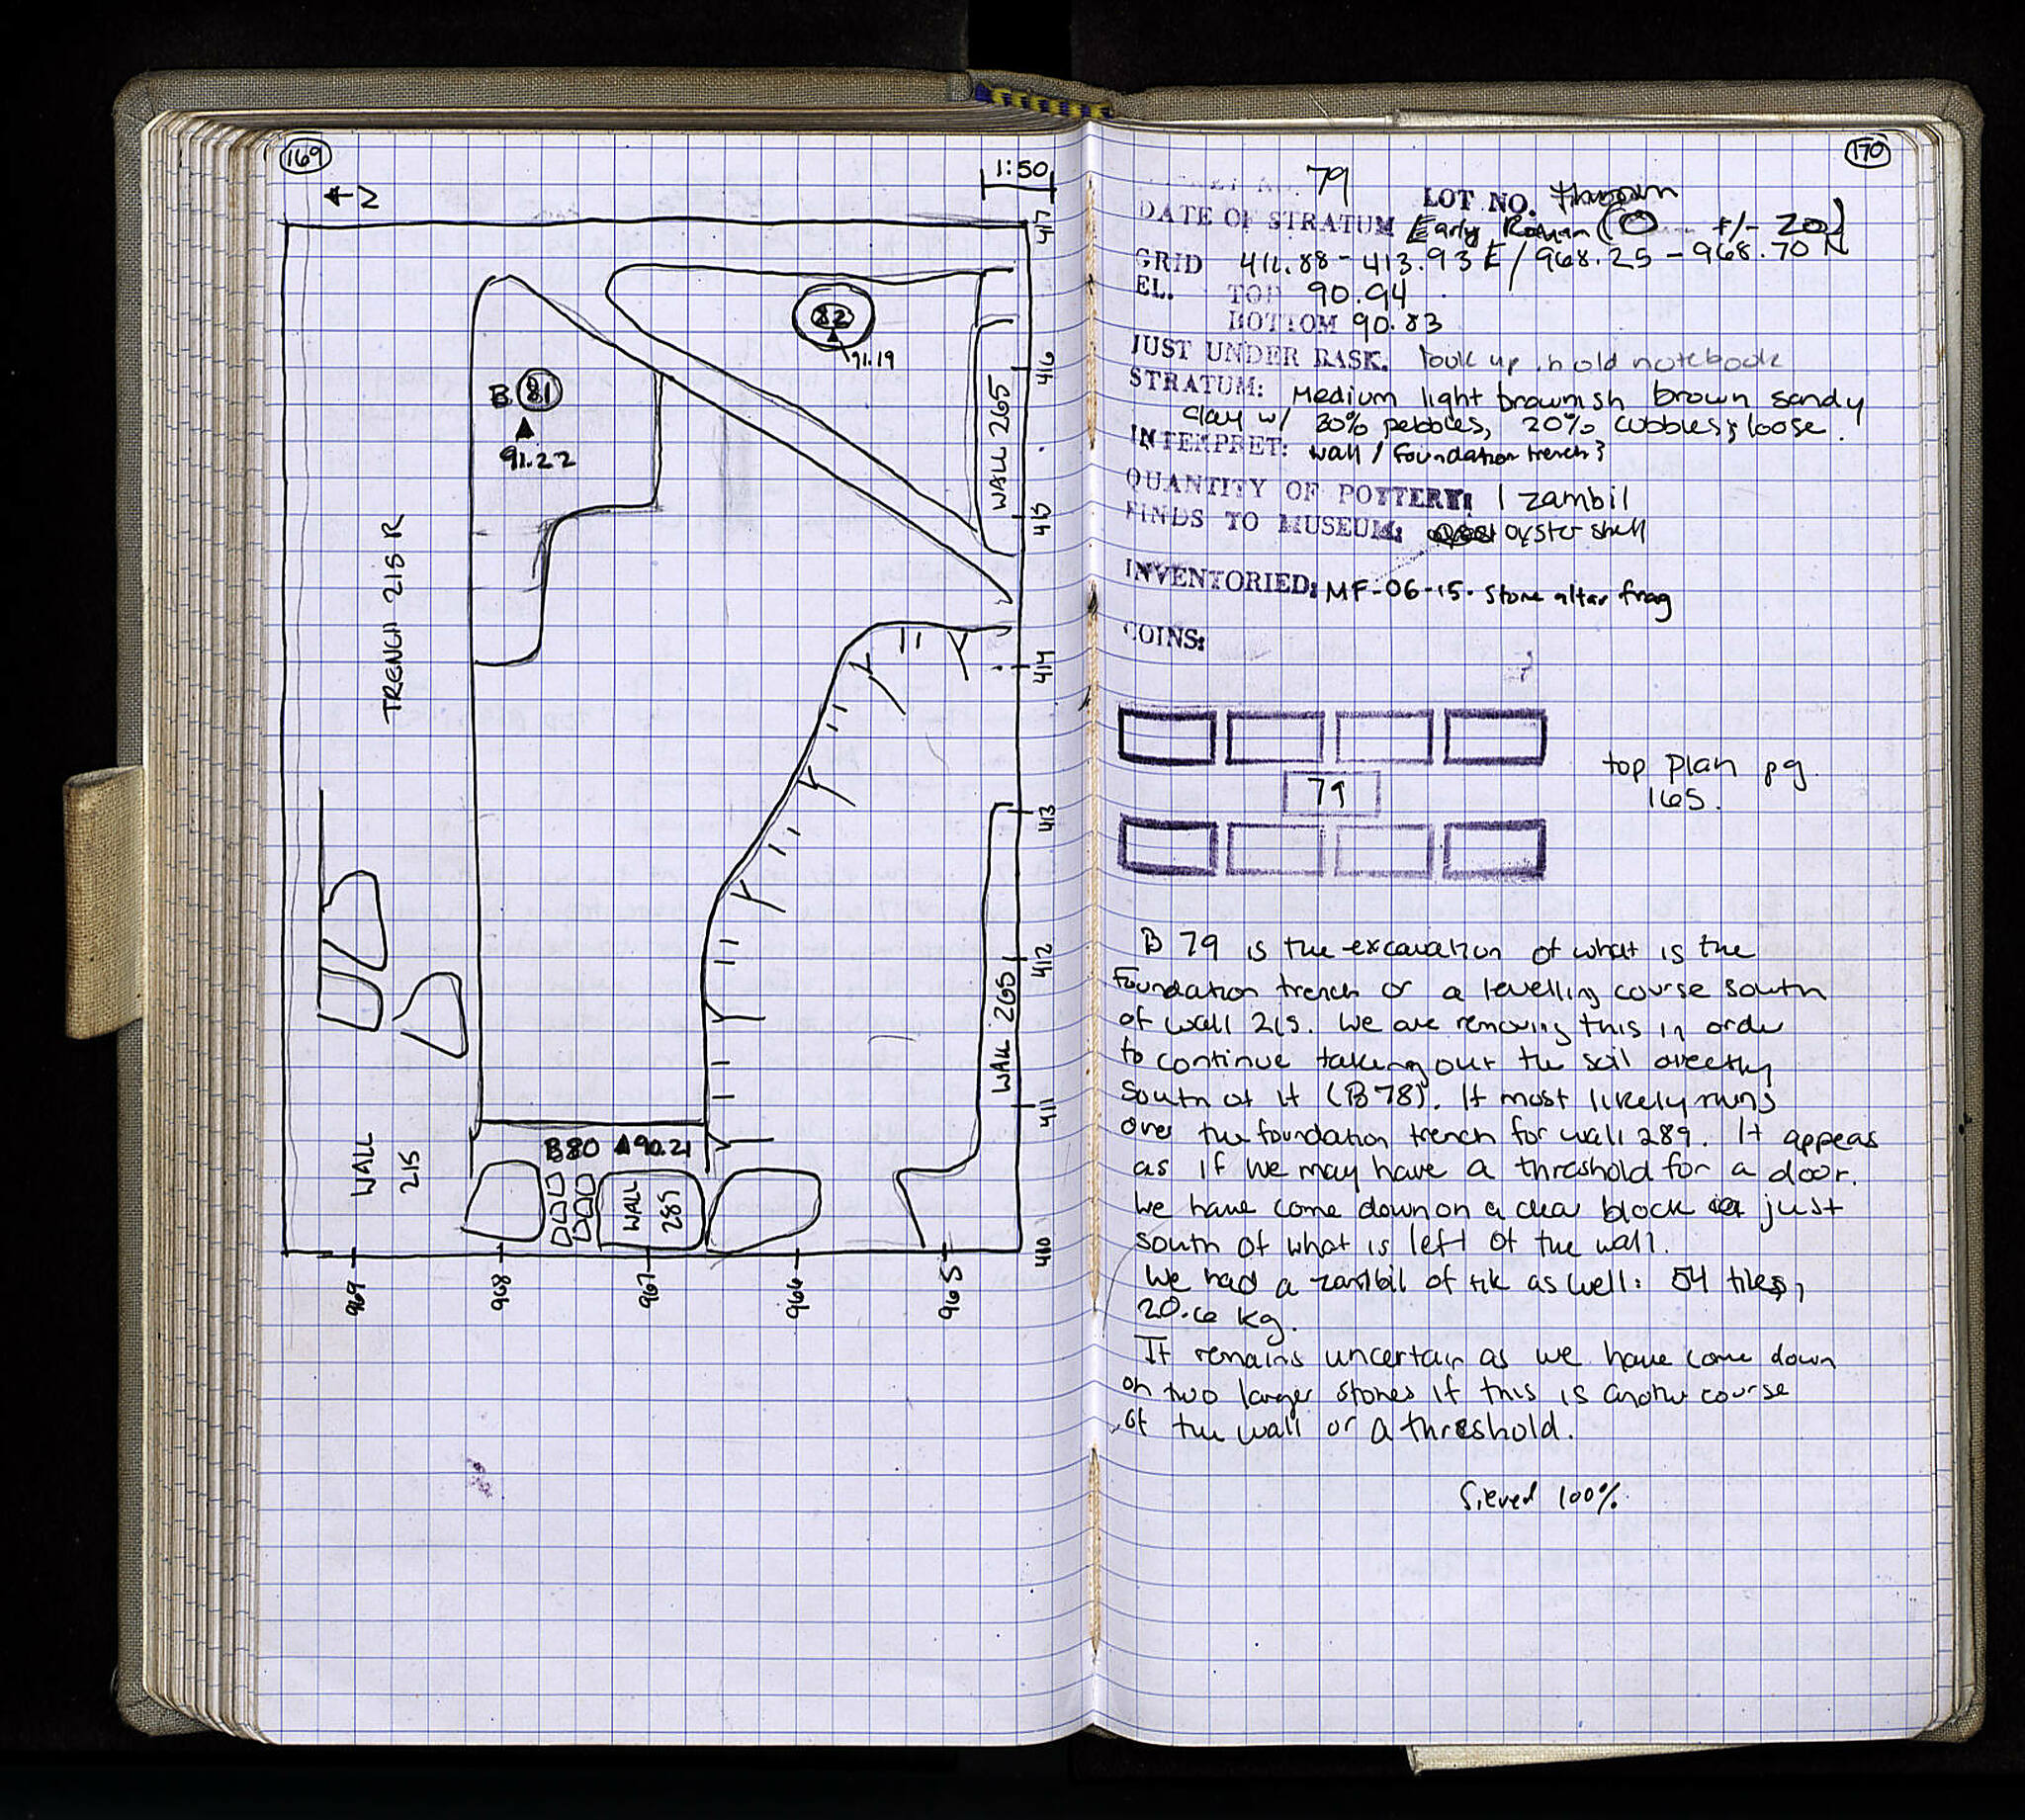 169
1:50
N
417
82
91.19
416
B 81
91.22
WALL 265
415
TRENCH 215 R
414
413
412
WALL 265
411
B80 90.21
WALL
215
WALL
289
410
969
968
967
966
965
170
79
LOT NO. thrown
DATE OF STRATUM Early Roman (0 +/- 20)
GRID 411.88-413.93 E/968.25-968.70 N
EL. TOP 90.94
BOTTOM 90.83
JUST UNDER BASK. look up in old notebook
STRATUM: Medium light brownish brown sandy
clay w/ 30% pebbles, 20% cobbles; loose.
INTERPRET: wall / foundation trench?
QUANTITY OF POTTERY: 1 zambil
FINDS TO MUSEUM: oyster shell
INVENTORIED: MF-06-15. Stone altar frag
COINS:
79
top plan pg.
165.
B 79 is the excavation of what is the
foundation trench or a levelling course south
of wall 215. We are removing this in order
to continue taking out the soil directly
south of it (B78). It most likely runs
over the foundation trench for wall 289. It appears
as if we may have a threshold for a door.
We have come down on a clear block just
south of what is left of the wall.
We had a zambil of tile as well: 54 tiles,
20.6 kg.
It remains uncertain as we have come down
on two larger stones if this is another course
of the wall or a threshold.
Sieved 100%